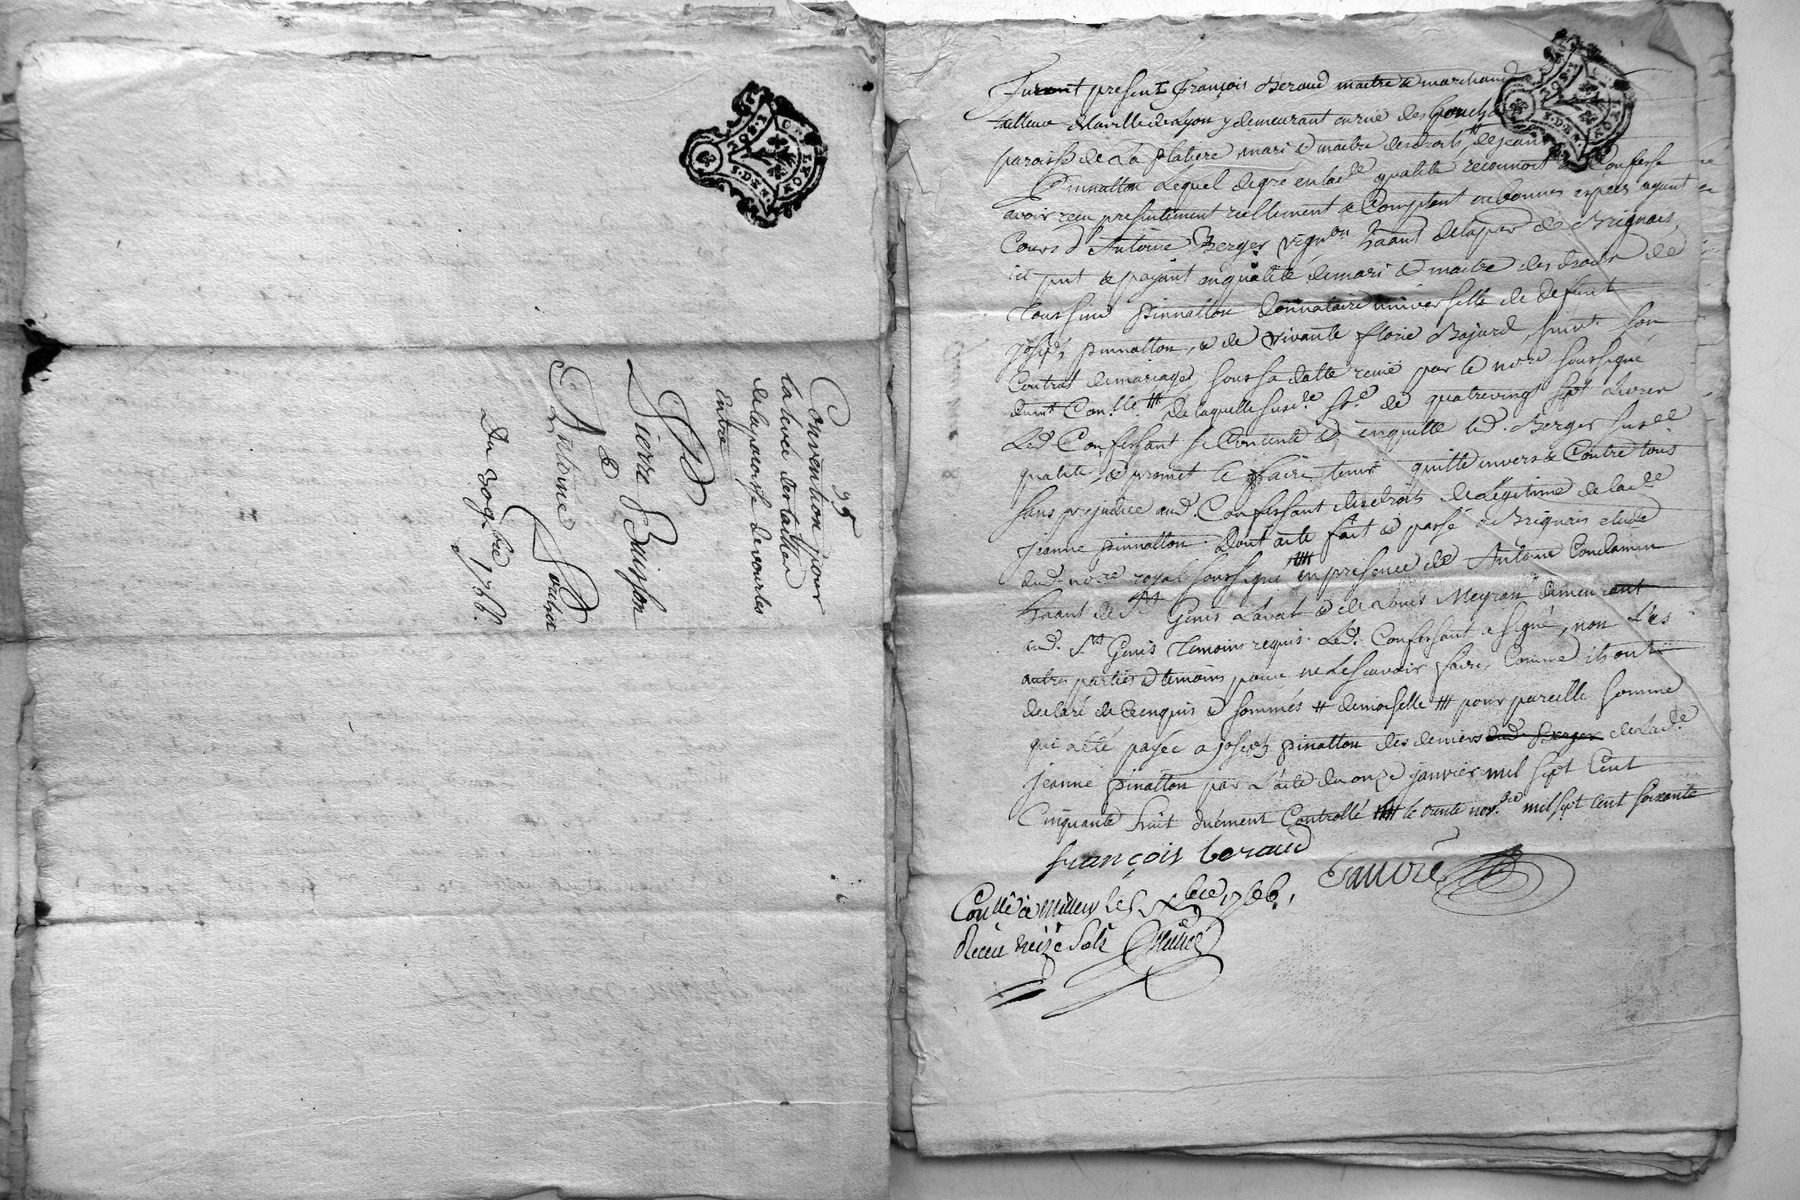 35
Convention pour
la levé des tailles
de la paroisse de vourles
Entre
Sr
Pierre Buisson
&
Antoine
Du 20 9bre 1766.
GN. LYON
MOY. I.
S. DEN.
Furent present François Béraud maitre & marchand
tailleur de la ville de Lyon y demeurant en rue des bouch
paroisse de La platiere mari & maitre des droits # de jeanne
Pinnatton Lequel de gré en lad.e qualité reconnoit & Confesse
avoir recu presentement reellement & Comptant en bonnes especes ayant
Cours d'Antoine Berger vign.on h̄aant de la par. de Brignais,
ici p̄nt & payant en qualité de mari & maitre des droits de
pinnatton donnataire universelle de defunt
joseph pinnatton, & de vivante florie Bajard, suivt. son
Contrat de mariage, sous sa datte reçu par le no.re soussigné,
de laquelle susd.e so.e de quatre vingt sept Livres
Led. Confessant se Contente & en quitte led. Berger susd.e
qualité & promet le faire tenir quitte envers & Contre tous
sans prejudice aud. Confessant des droits de Légitime de lad.e
jeanne pinnatton. Dont acte fait & passé a Brignais etude
dud. no.re royal soussigné en presence de Antoine Condamin
h̄aant de St Genis Laval & de Louis Meyran demeurant
aud. St Genis temoins requis. Led. Confessant a signé, non Les
autres parties & temoins pour ne le savoir faire, Comme ils ont
declaré de Ce enquis & sommés # demoiselle ## pour pareille somme
qui a eté payée a joseph pinatton des deniers dud. Berger de Lad.e
jeanne pinatton par L'acte du onze janvier mil sept Cent
Cinquante huit duement Controllé le trente nov.bre mil sept Cent soixante
françois beraud
Con.llé a millery le 5 Xbre 1766,
Reçu treize sols